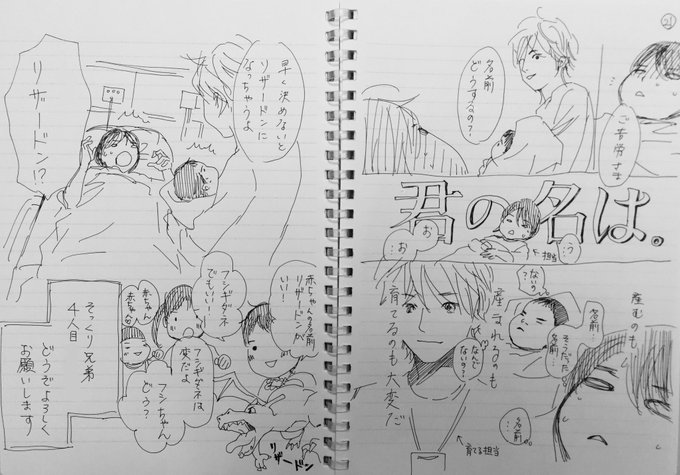 21
ご苦労さま
名前
どうするの?
君の名は。
う…
お
お…
←担当
産むのも
ないの
?
名前…
そうだった
名前…
産まれるのも
なんで
ないの?
育てるのも大変だ
名前…
↑育てる担当
早く決めないと
リザードンに
なっちゃうよ
リザードン!?
赤ちゃんの名前
リザードンが
いい!
フシギダネ
でもいい!
赤ちゃん
赤ちゃん
フシギダネは
変だよ
フシちゃん
どう?
リザードン
そっくり兄弟
4人目
どうぞよろしく
お願いします